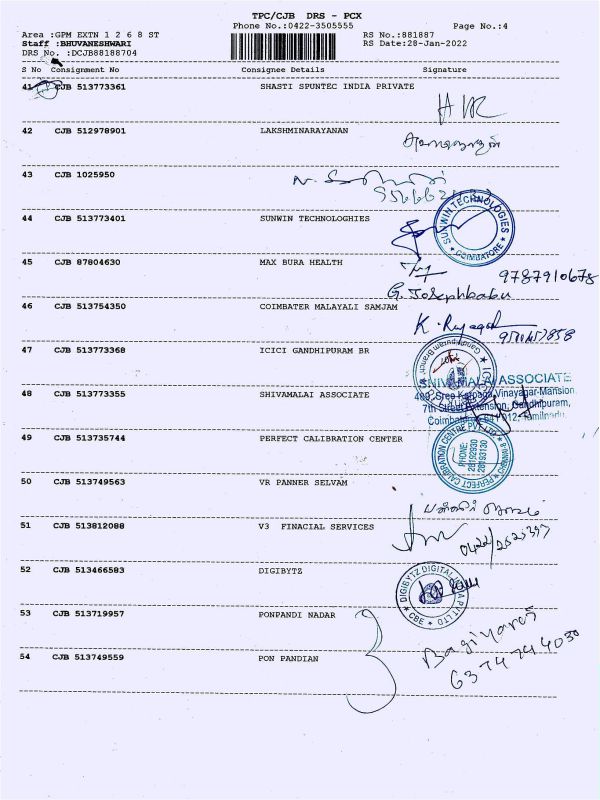 TPC/CJB DRS - PCX
Phone No.:0422-3505555 Page No.:4
Area :GPM EXTN 1 2 6 8 ST RS No.:881887
Staff :BHUVANESHWARI RS Date:28-Jan-2022
DRS No. :DCJB88188704
S No Consignment No Consignee Details Signature
41 CJB 513773361 SHASTI SPUNTEC INDIA PRIVATE
42 CJB 512978901 LAKSHMINARAYANAN
43 CJB 1025950
44 CJB 513773401 SUNWIN TECHNOLOGHIES
SUNWIN TECHNOLOGIES
COIMBATORE
45 CJB 87804630 MAX BURA HEALTH
9787910678
G. Josephbabu
46 CJB 513754350 COIMBATER MALAYALI SAMJAM
47 CJB 513773368 ICICI GANDHIPURAM BR
48 CJB 513773355 SHIVAMALAI ASSOCIATE
SHIVAMALAI ASSOCIATE
Vinayagar-Mansion,
7th Street Extension, Gandhipuram,
Tamilnadu
49 CJB 513735744 PERFECT CALIBRATION CENTER
PERFECT CALIBRATION CENTRE PVT LTD
PHONE:
28192930
28193130
50 CJB 513749563 VR PANNER SELVAM
51 CJB 513812088 V3 FINACIAL SERVICES
52 CJB 513466583 DIGIBYTZ
DIGIBYTZ DIGITAL
CBE
53 CJB 513719957 PONPANDI NADAR
54 CJB 513749559 PON PANDIAN
6374744030